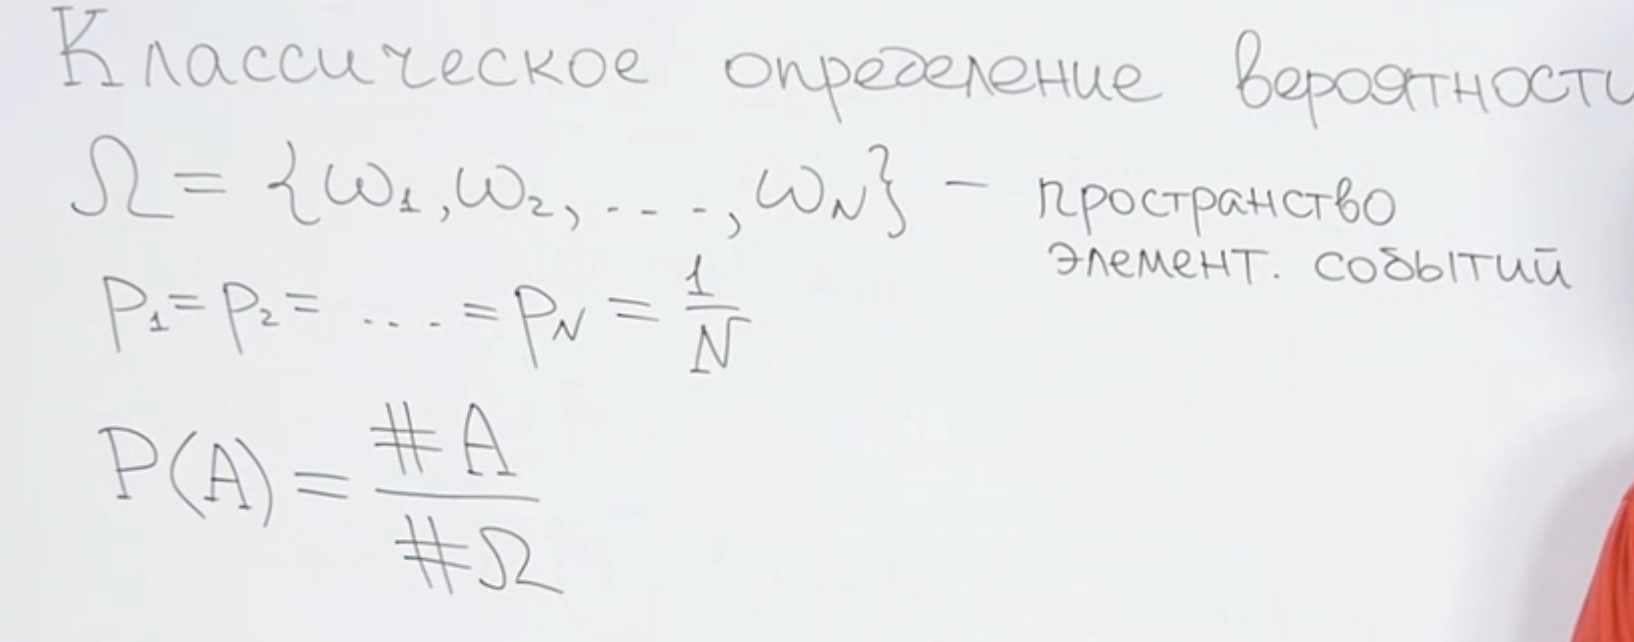 Классическое определение вероятности
Ω = {ω₁, ω₂, ...., ω_N} — пространство
элемент. событий
p₁ = p₂ = .... = p_N = 1/N
P(A) = #A / #Ω